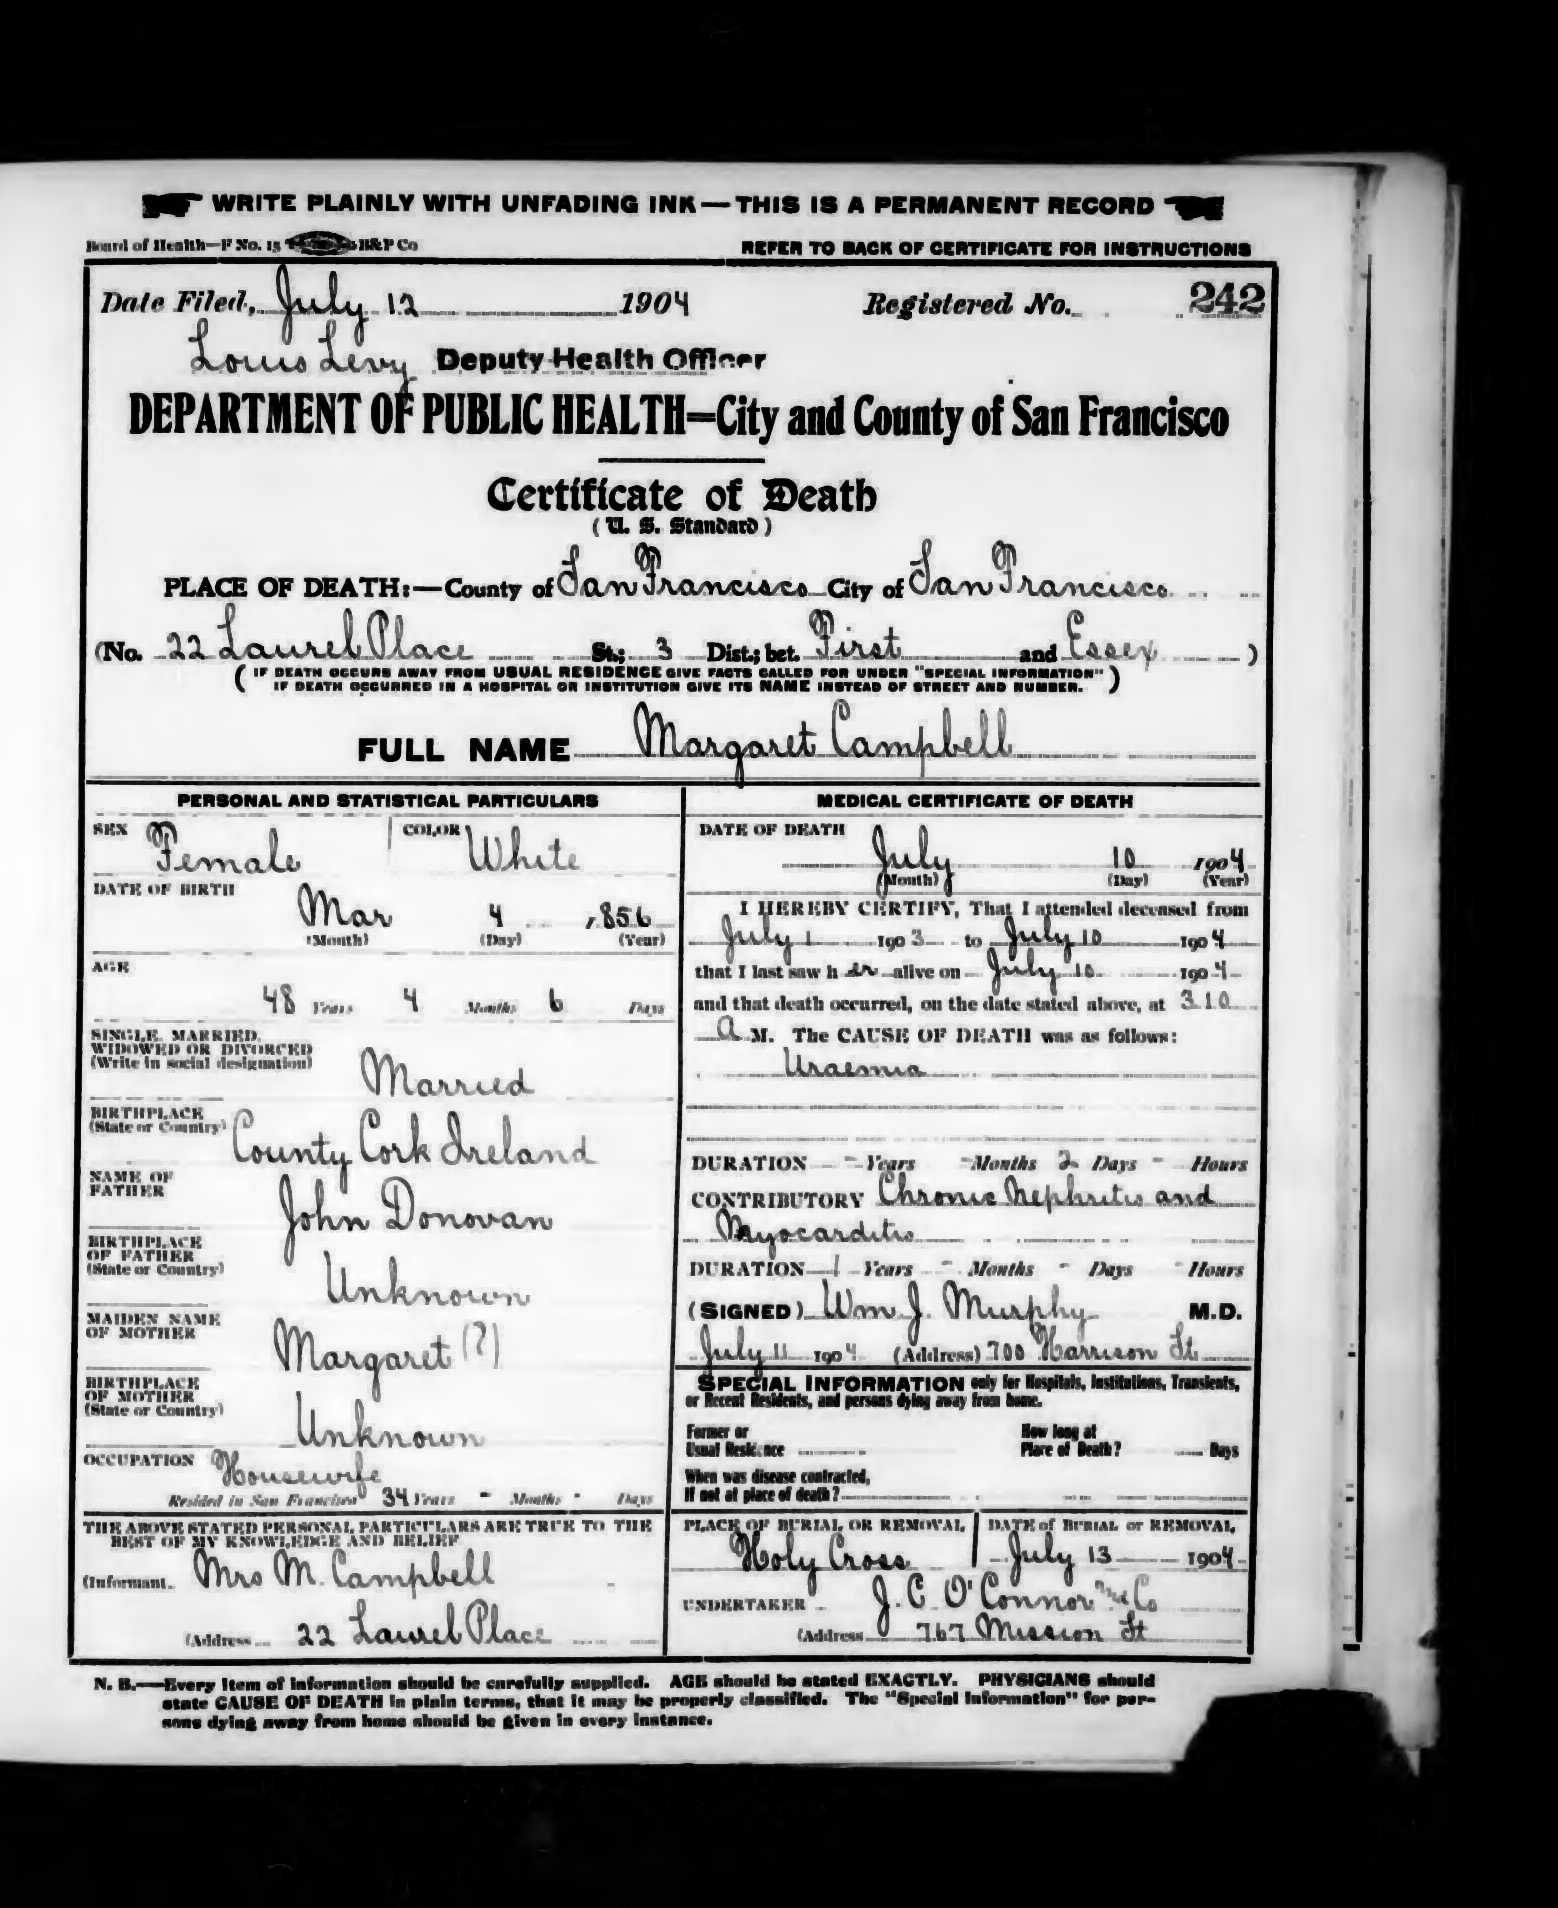 WRITE PLAINLY WITH UNFADING INK—THIS IS A PERMANENT RECORD
Board of Health—F No. 15 B&P Co REFER TO BACK OF CERTIFICATE FOR INSTRUCTIONS
Date Filed, July 12 1904 Registered No. 242
Louis Levy Deputy Health Officer
DEPARTMENT OF PUBLIC HEALTH=City and County of San Francisco
Certificate of Death
(U. S. Standard)
PLACE OF DEATH:—County of San Francisco City of San Francisco
(No. 22 Laurel Place St.; 3 Dist.; bet. First and Essex )
( IF DEATH OCCURS AWAY FROM USUAL RESIDENCE GIVE FACTS CALLED FOR UNDER "SPECIAL INFORMATION"
IF DEATH OCCURRED IN A HOSPITAL OR INSTITUTION GIVE ITS NAME INSTEAD OF STREET AND NUMBER. )
FULL NAME Margaret Campbell
PERSONAL AND STATISTICAL PARTICULARS
SEX Female COLOR White
DATE OF BIRTH
Mar 4 1856
(Month) (Day) (Year)
AGE
48 Years 4 Months 6 Days
SINGLE, MARRIED,
WIDOWED OR DIVORCED
(Write in social designation) Married
BIRTHPLACE
(State or Country) County Cork Ireland
NAME OF
FATHER John Donovan
BIRTHPLACE
OF FATHER
(State or Country) Unknown
MAIDEN NAME
OF MOTHER Margaret (?)
BIRTHPLACE
OF MOTHER
(State or Country) Unknown
OCCUPATION Housewife
Resided in San Francisco 34 Years - Months - Days
THE ABOVE STATED PERSONAL PARTICULARS ARE TRUE TO THE
BEST OF MY KNOWLEDGE AND BELIEF
(Informant. Mrs M. Campbell
(Address 22 Laurel Place
MEDICAL CERTIFICATE OF DEATH
DATE OF DEATH
July 10 1904
(Month) (Day) (Year)
I HEREBY CERTIFY, That I attended deceased from
July 1 1903 to July 10 1904
that I last saw h er alive on July 10 1904
and that death occurred, on the date stated above, at 310
a M. The CAUSE OF DEATH was as follows:
Uraemia
DURATION - Years - Months 2 Days - Hours
CONTRIBUTORY Chronic Nephritis and
Myocarditis
DURATION 1 Years - Months - Days - Hours
(SIGNED) Wm J. Murphy M.D.
July 11 1904 (Address) 700 Harrison St
SPECIAL INFORMATION only for Hospitals, Institutions, Transients,
or Recent Residents, and persons dying away from home.
Former or
Usual Residence
How long at
Place of Death? Days
When was disease contracted,
If not at place of death?
PLACE OF BURIAL OR REMOVAL
Holy Cross
DATE of BURIAL or REMOVAL
July 13 1904
UNDERTAKER J. C. O'Connor and Co
(Address 767 Mission St
N. B.—Every item of information should be carefully supplied. AGE should be stated EXACTLY. PHYSICIANS should
state CAUSE OF DEATH in plain terms, that it may be properly classified. The "Special Information" for per-
sons dying away from home should be given in every instance.